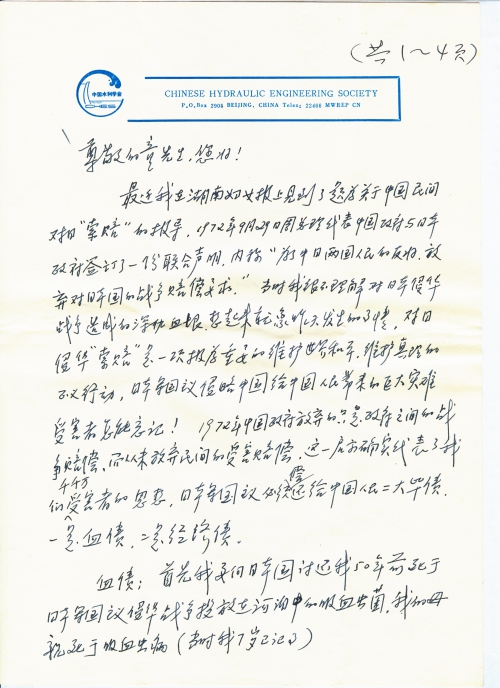 (共1～4页)
中国水利学会
CHES
CHINESE HYDRAULIC ENGINEERING SOCIETY
P.O.Box 2905 BEIJING, CHINA Telex: 22466 MWREP CN
尊敬的童先生,您好!
最近我在湖南妇女报上见到了题为关于中国民间
对日"索赔"的报导,1972年9月29日周总理代表中国政府与日本
政府签订了一份联合声明,内称"为了中日两国人民的友好,放
弃对日本国的战争赔偿要求。"当时我很不理解对日本侵华
战争造成的深仇血恨,想起来就象昨天发生的事情,对日
侵华"索赔"是一项极为重要的维护世界和平,维护真理的
正义行动,日本帝国主义侵略中国给中国人民带来的巨大灾难
受害者怎能忘记!1972年中国政府放弃的只是政府之间的战
争赔偿,而从未放弃民间的受害赔偿,这一启示确实代表了我
们千千万受害者的思想,日本帝国主义必须偿还给中国人民二大笔债.
一是血债,二是经济债。
血债:首先我要向日本国讨还我50年前死于
日本帝国主义侵华战争投放在河泊中的吸血虫菌,我的母
亲死于吸血虫病(当时我7岁已记事)